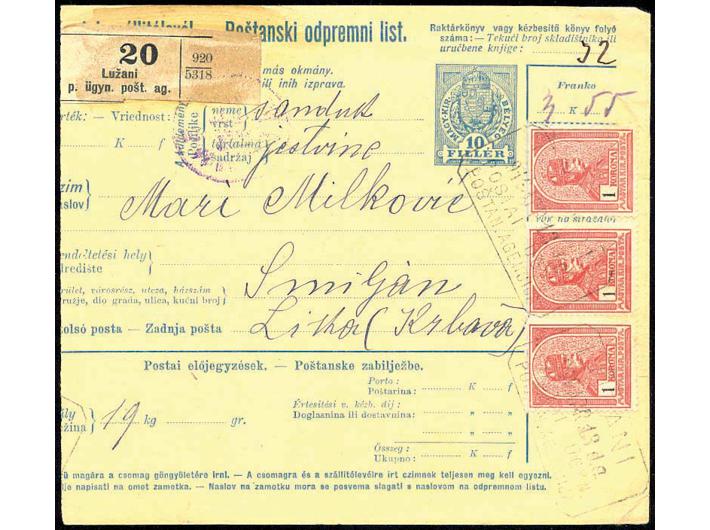 Poštanski odpremni list.
Raktárkönyv vagy kézbesítő könyv folyó
száma: — Tekući broj skladištnika ili
uručbene knjige:
52
20
Lužani
p. ügyn. pošt. ag.
920
5318
más okmány.
ili inih izprava.
Franko
3 K 55 f
— Vriednost:
K f
A küldemény
Pošiljke
neme
vrst
tartalma
sadržaj
sanduk
jestvine
MAGY. KIR. BÉLYEG
10
FILLÉR
1 KORONA
MAGYAR KIR. POSTA
1 KORONA
MAGYAR KIR. POSTA
1 KORONA
MAGYAR KIR. POSTA
Mari Milković
Smiljan
Lika (Krbava)
rendeltetési hely
odredište
város rész, utcza, házszám
dio grada, ulica, kućni broj
utolsó posta — Zadnja pošta
Postai előjegyzések. — Poštanske zabilježbe.
Porto:
Poštarina: K f
Értesítési v. kézb. díj:
Doglasnina ili dostavnina: " "
" "
Összeg:
Ukupno: K f
19 kg gr.
magára a csomag göngyöletére irni. — A csomagra és a szállítólevélre írt czimnek teljesen meg kell egyezni.
napisati na omot zamotka. — Naslov na zamotku mora se posvema slagati s naslovom na odpremnom listu.